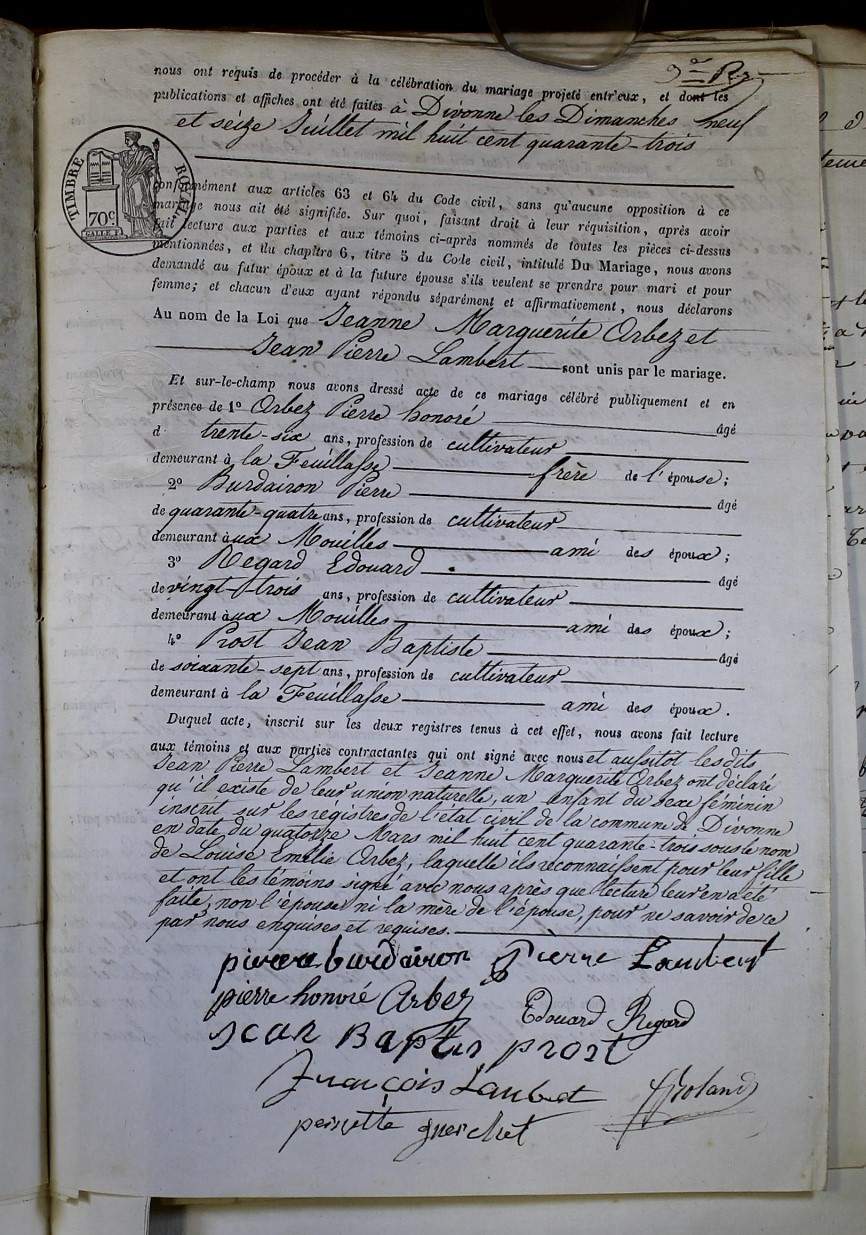 nous ont requis de procéder à la célébration du mariage projeté entr'eux, et dont les
publications et affiches ont été faites à Divonne les Dimanches neuf
et seize Juillet mil huit cent quarante-trois
TIMBRE ROYAL
70c
conformément aux articles 63 et 64 du Code civil, sans qu'aucune opposition à ce
mariage nous ait été signifiée. Sur quoi, faisant droit à leur réquisition, après avoir
fait lecture aux parties et aux témoins ci-après nommés de toutes les pièces ci-dessus
mentionnées, et du chapitre 6, titre 5 du Code civil, intitulé Du Mariage, nous avons
demandé au futur époux et à la future épouse s'ils veulent se prendre pour mari et pour
femme; et chacun d'eux ayant répondu séparément et affirmativement, nous déclarons
Au nom de la Loi que Jeanne Marguerite Orbez et
Jean Pierre Lambert sont unis par le mariage.
Et sur-le-champ nous avons dressé acte de ce mariage célébré publiquement et en
présence de 1° Orbez Pierre honoré âgé
d trente-six ans, profession de cultivateur
demeurant à la Feuillasse frère de l'épouse;
2° Burdairon Pierre âgé
de quarante-quatre ans, profession de cultivateur
demeurant aux Mouilles ami des époux;
3° Regard Edouard âgé
de vingt-trois ans, profession de cultivateur
demeurant àux Mouilles ami des époux;
4° Prost Jean Baptiste âgé
de soixante-sept ans, profession de cultivateur
demeurant à la Feuillasse ami des époux.
Duquel acte, inscrit sur les deux registres tenus à cet effet, nous avons fait lecture
aux témoins et aux parties contractantes qui ont signé avec nous et aussitôt les dits
Jean Pierre Lambert et Jeanne Marguerite Orbez ont déclaré
qu'il existe de leur union naturelle, un enfant du sexe féminin
inscrit sur les régistres de l'état civil de la commune de Divonne
en date du quatorze Mars mil huit cent quarante-trois sous le nom
de Louise Emélie Orbez, laquelle ils reconnaissent pour leur fille
et ont les témoins signé avec nous après que lecture leur en a été
faite, non l'épouse ni la mère de l'épouse, pour ne savoir de ce
par nous enquises et requises.
pierre burdairon Pierre Lambert
pierre honoré Orbez Edouard Regard
Jean Baptis prost
François Lambet Roland
pernette guerchet